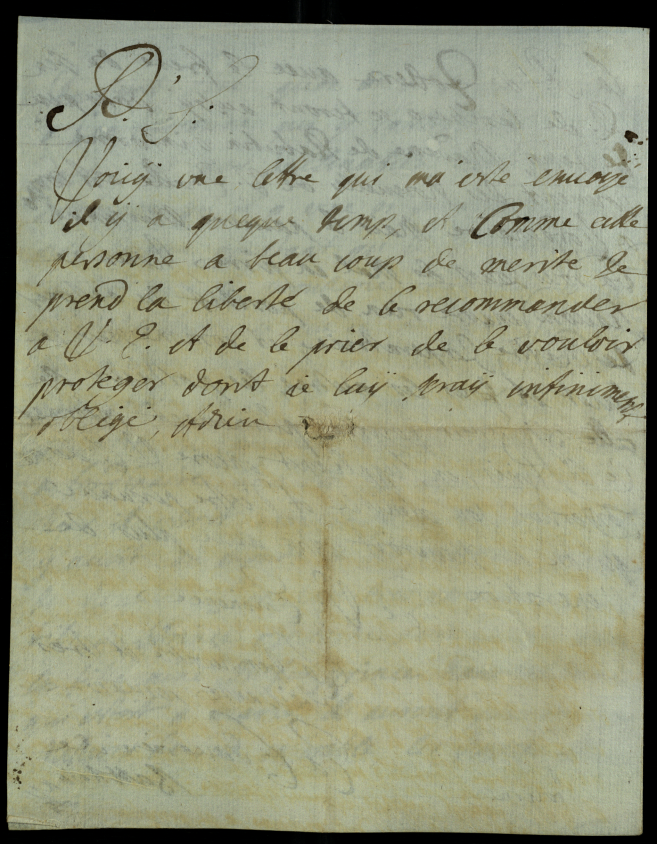 P. S.
Voicÿ une lettre qui ma esté envoyé
il ÿ a queque temps, et Comme cette
personne a beau coup de merite Je
prend la liberté de le recommander
a V. E. et de le prier de le vouloir
proteger dont je luÿ seraÿ infiniment
obligé, adieu